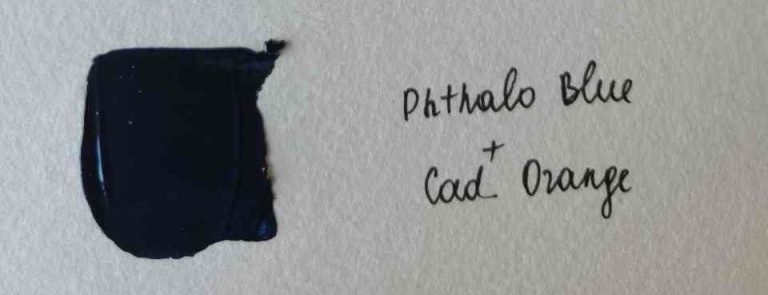 Phthalo Blue
+
Cad Orange